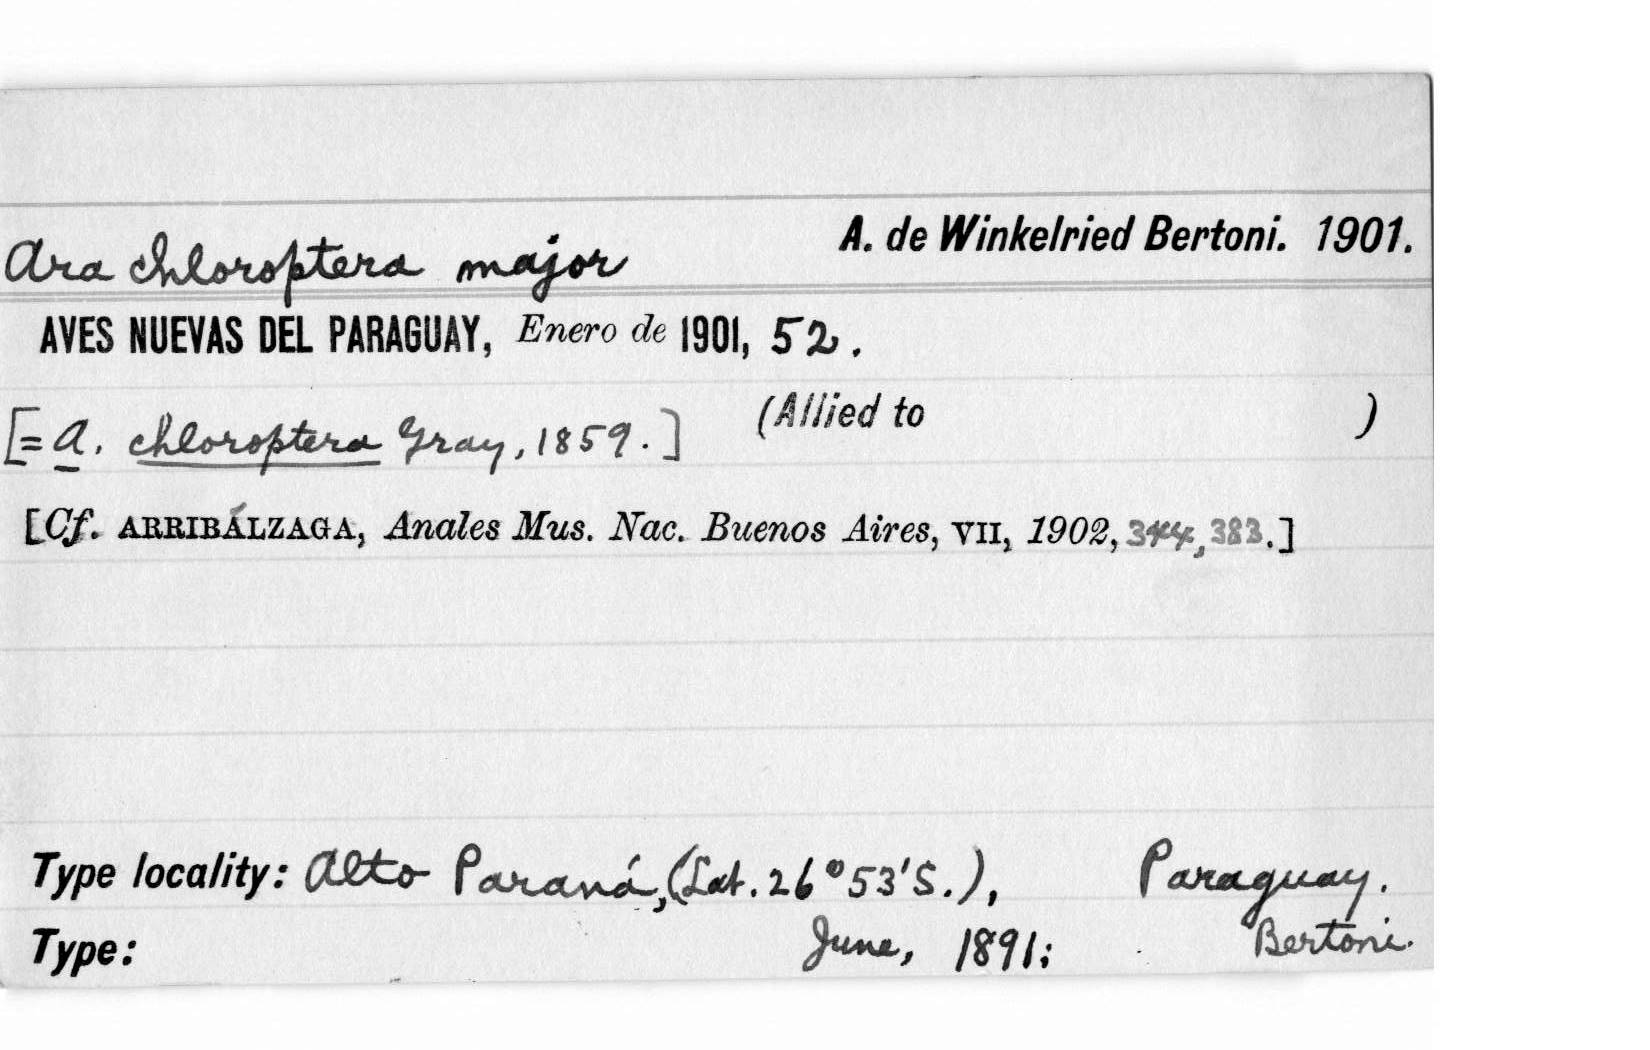 Ara chloroptera major A. de Winkelried Bertoni. 1901.
AVES NUEVAS DEL PARAGUAY, Enero de 1901, 52.
[= A. chloroptera Gray, 1859.] (Allied to )
[Cf. ARRIBÁLZAGA, Anales Mus. Nac. Buenos Aires, VII, 1902, 344, 383.]
Type locality: Alto Paraná, (Lat. 26°53'S.), Paraguay.
Type: June, 1891; Bertoni.